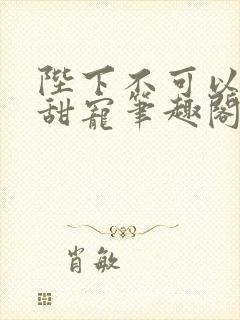 陛下不可以
甜宠笔趣阁
肖敏